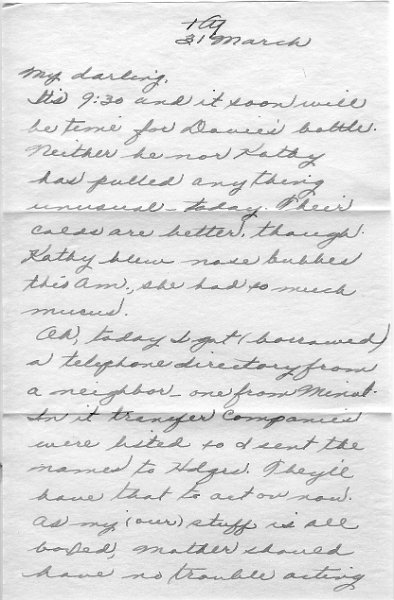 31 March
My darling,
It's 9:30 and it soon will
be time for Davie's bottle.
Neither he nor Kathy
has pulled anything
unusual - today. Their
colds are better, though.
Kathy blew nose bubbles
this AM., she had so much
mucus.
Oh, today I got (borrowed)
a telephone directory from
a neighbor - one from Minot.
In it transfer companies
were listed so I sent the
names to Hdqrs. They'll
have that to act on now.
As my (our) stuff is all
boxed, Mother should
have no trouble acting